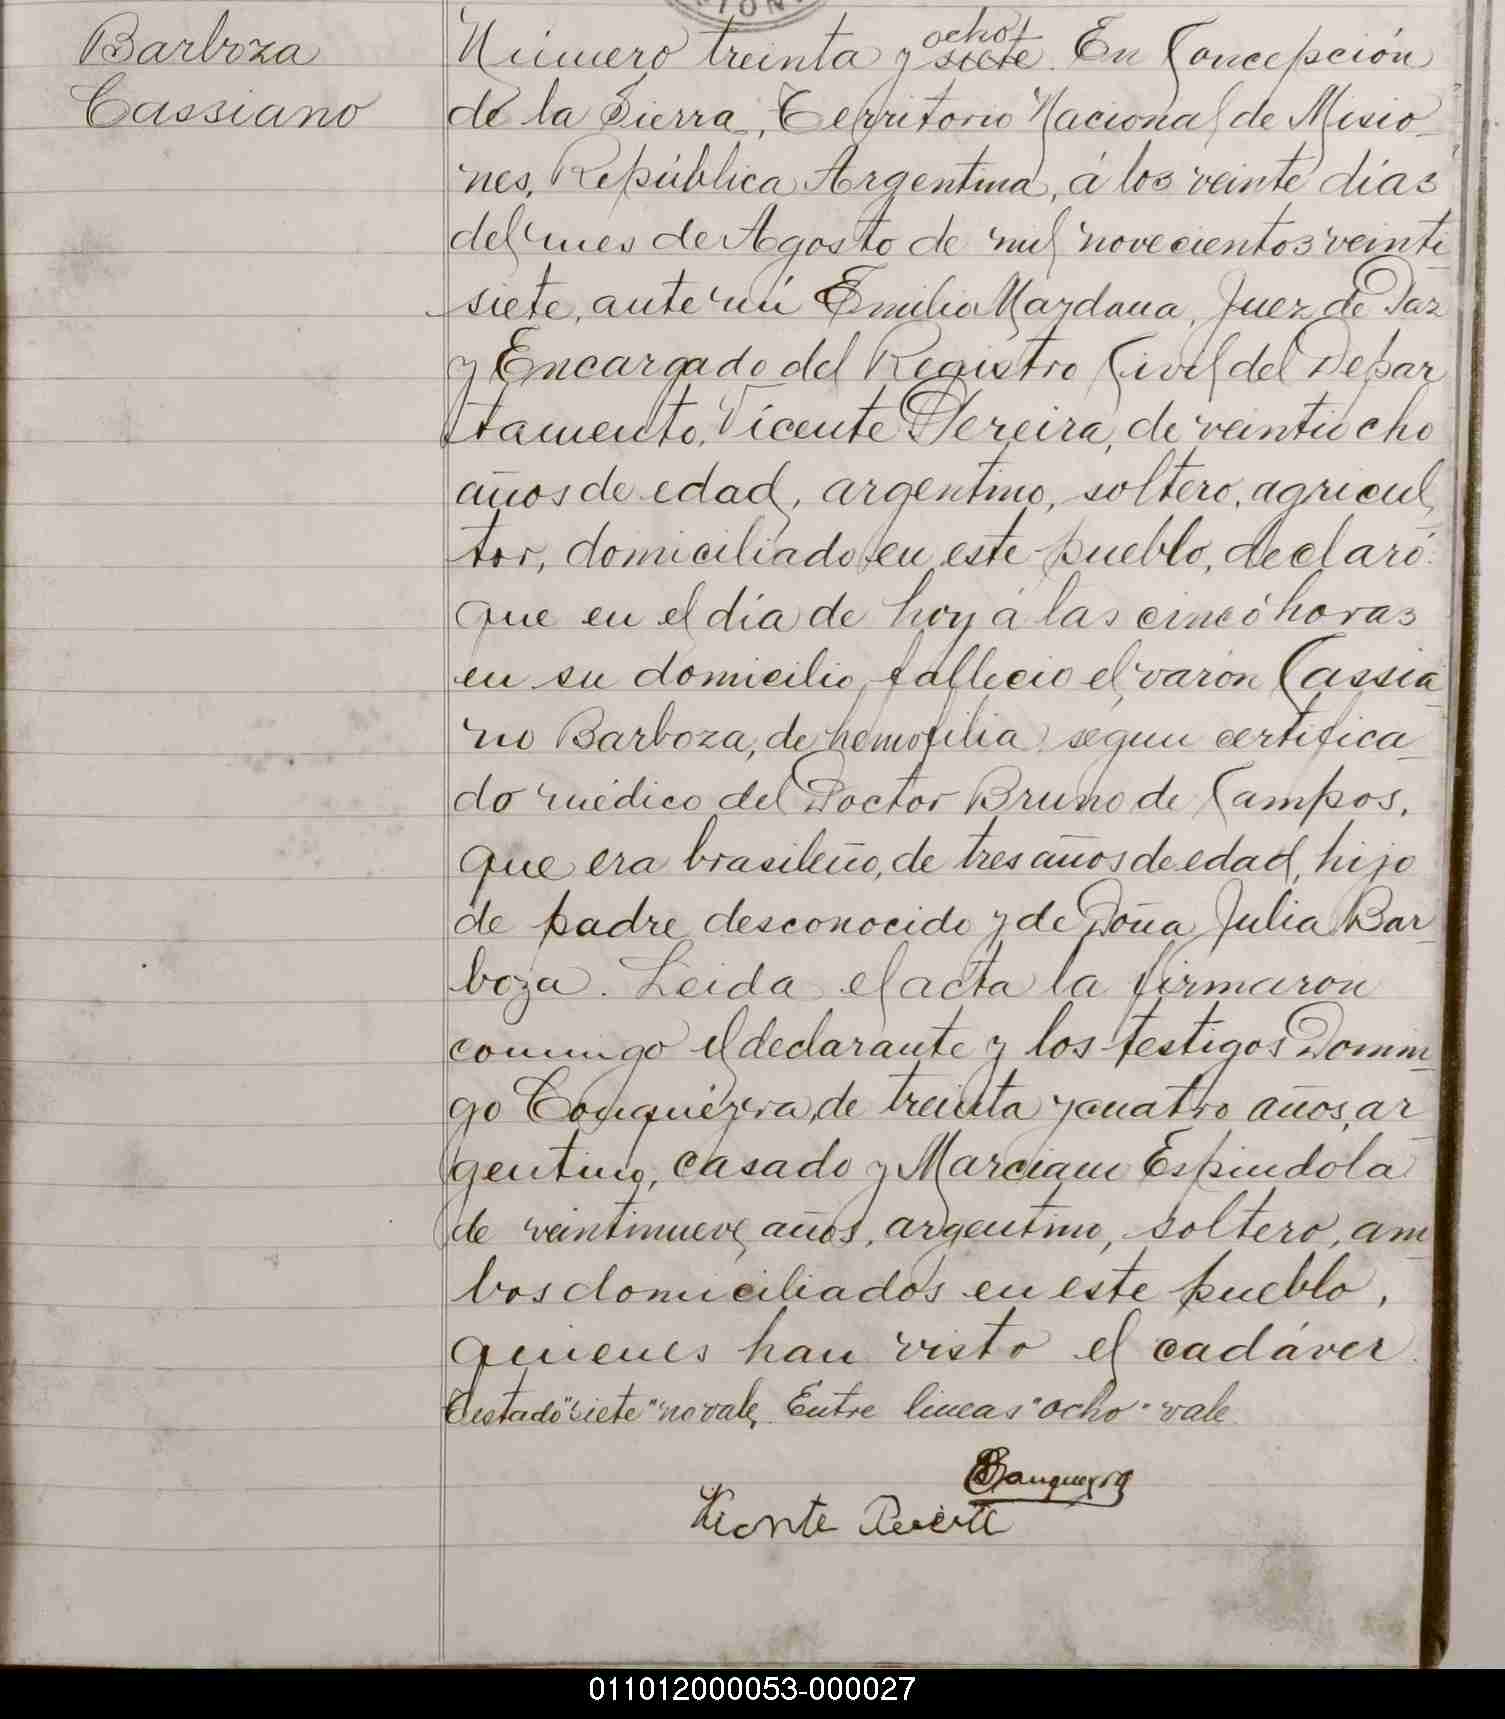 Barboza
Cassiano
CION
ocho
Número treinta y siete. En Concepción
de la Sierra, Territorio Nacional de Misio-
nes, República Argentina, á los veinte días
del mes de Agosto de mil novecientos veinti
siete, ante mí Emilio Mardana, Juez de Paz
y Encargado del Registro Civil del Depar
tamento, Vicente Pereira, de veintiocho
años de edad, argentino, soltero, agricul
tor, domiciliado en este pueblo, declaró:
que en el día de hoy á las cinco horas
en su domicilio, falleció el varón Cassia
no Barboza, de hemofilia segun certifica
do médico del Doctor Bruno de Campos,
que era brasileño, de tres años de edad, hijo
de padre desconocido y de Doña Julia Bar-
boza. Leida el acta la firmaron
conmigo el declarante y los testigos Domin-
go de treinta y cuatro años, ar
gentino, casado y Marciano Espindola
de veintinueve años, argentino, soltero, am
bos domiciliados en este pueblo,
quienes han visto el cadáver.
Testado "siete" no vale. Entre lineas "ocho" vale.
011012000053-000027